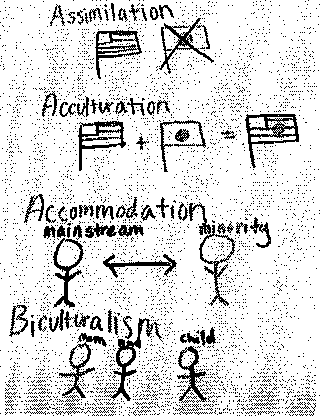 Assimilation
Acculturation
+ =
Accommodation
mainstream minority
Biculturalism
mom dad child